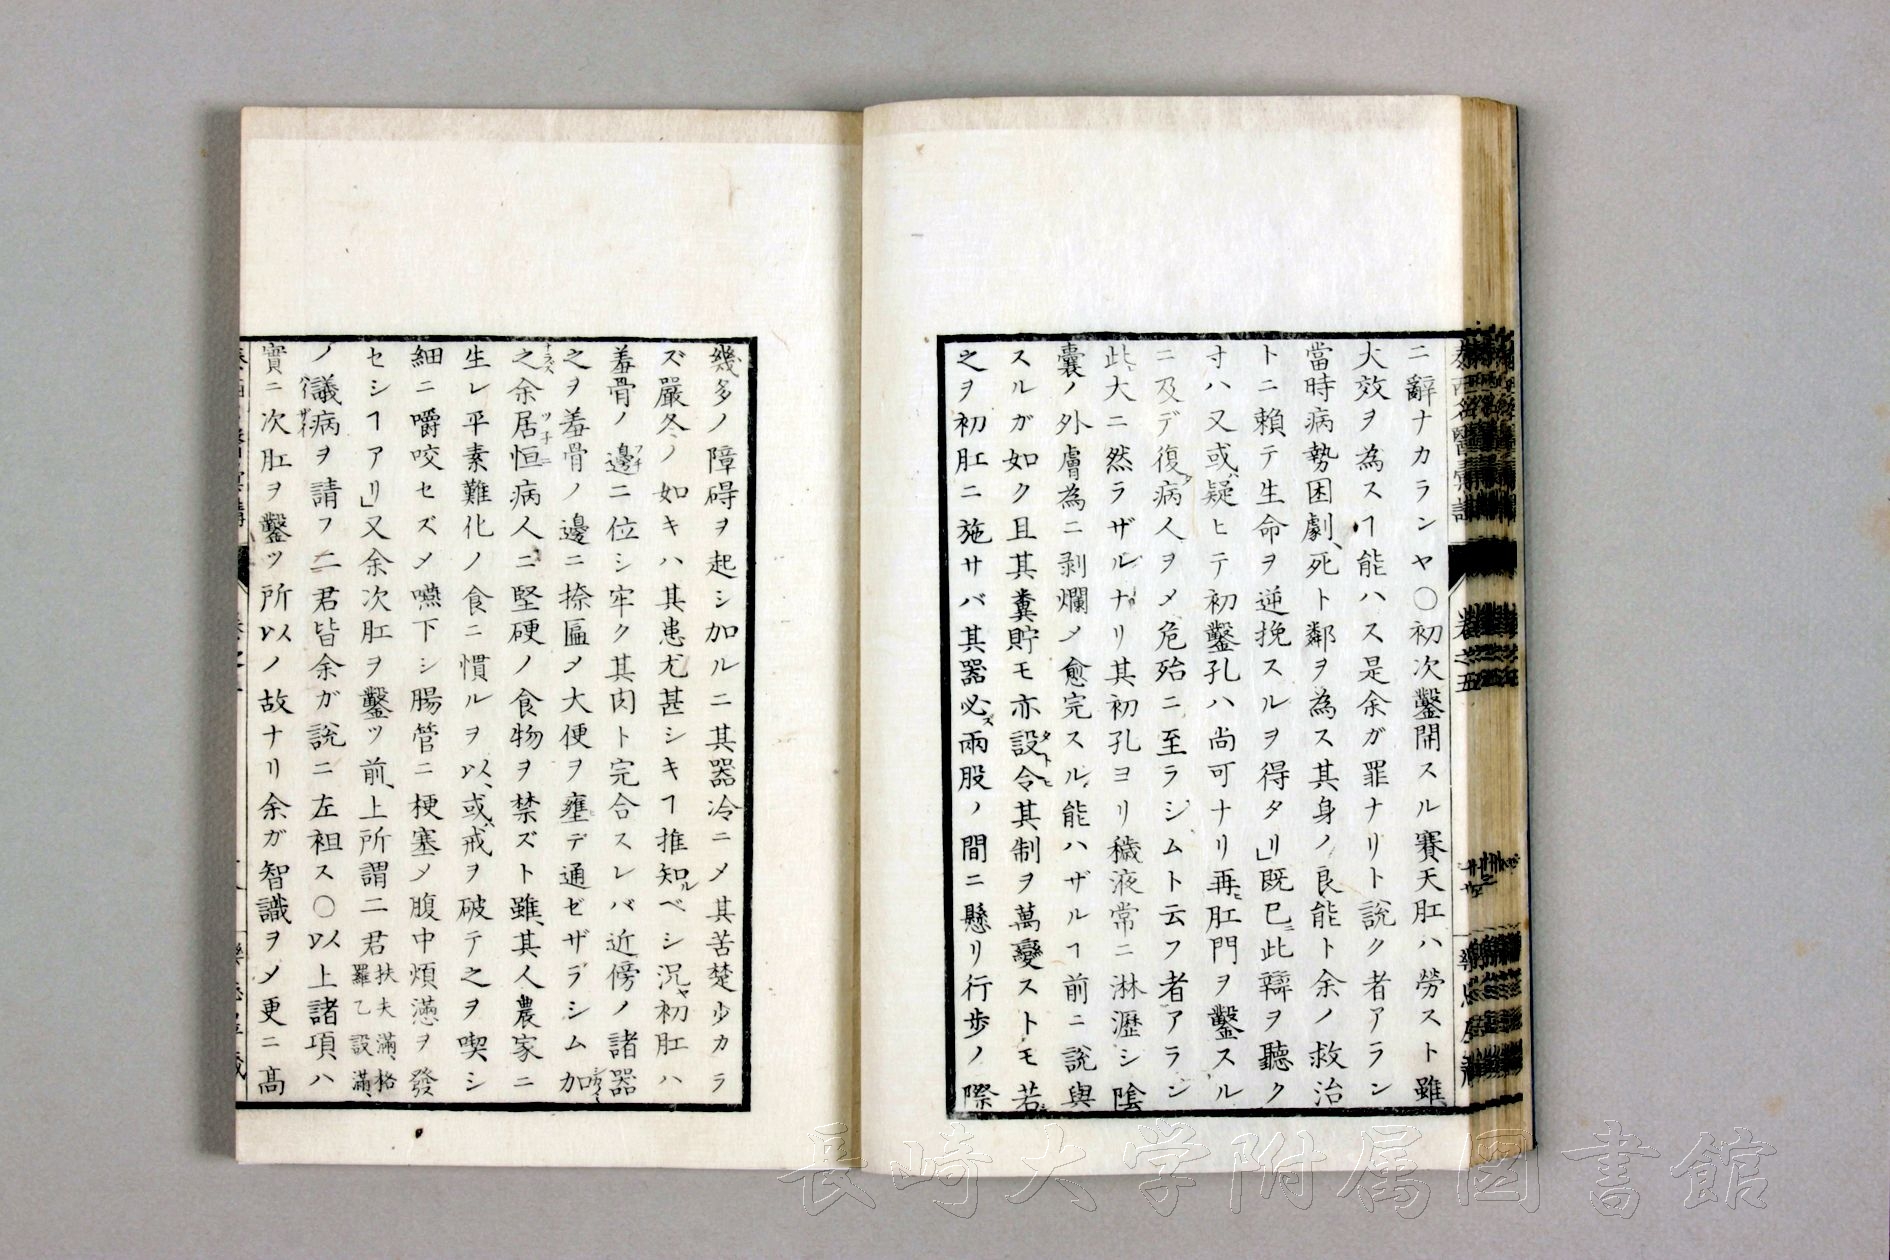 ニ辭ナカランヤ〇初次鑿開スル賽天肛ハ勞スト雖
大效ヲ為スヿ能ハス是余ガ罪ナリト説ク者アラン
當時病勢困劇、死ト鄰ヲ為ス其身ノ良能ト余ノ救治
トニ賴テ生命ヲ逆挽スルヲ得タリ」既已ニ此辯ヲ聽ク
寸ハ又或ハ疑ヒテ初鑿孔ハ尚可ナリ再ヒ肛門ヲ鑿スル
ニ及デ復病人ヲメ危殆ニ至ラシムト云フ者アラン
此大ニ然ラザルナリ其初孔ヨリ穢液常ニ淋瀝シ陰
囊ノ外膚為ニ剥爛メ愈完スル能ハザルヿ前ニ説與
スルガ如ク且其糞貯モ亦設令其制ヲ萬變ストモ若
之ヲ初肛ニ施サバ其器必ズ兩股ノ間ニ懸リ行歩ノ際
泰西名醫彙講 卷之五
幾多ノ障碍ヲ起シ加ルニ其器冷ニメ其苦楚少カラ
ズ嚴冬ノ如キハ其患尤甚シキヿ推知ルベシ況ヤ初肛ハ
羞骨ノ邊ニ位シ牢ク其肉ト完合スレバ近傍ノ諸器
之ヲ羞骨ノ邊ニ捺匾メ大便ヲ壅デ通ゼザラシム加
之余居恒病人ニ堅硬ノ食物ヲ禁ズト雖、其人農家ニ
生レ平素難化ノ食ニ慣ルヲ以、或ハ戒ヲ破テ之ヲ喫シ
細ニ嚼咬セズメ嚥下シ腸管ニ梗塞メ腹中煩懣ヲ發
セシヿアリ」又余次肛ヲ鑿ツ前、上所謂二君扶夫滿、格羅乙設滿、
ノ議病ヲ請フ二君皆余ガ説ニ左袒ス〇以上諸項ハ
實ニ次肛ヲ鑿ツ所以ノ故ナリ余ガ智識ヲメ更ニ高
長崎大学附属図書館